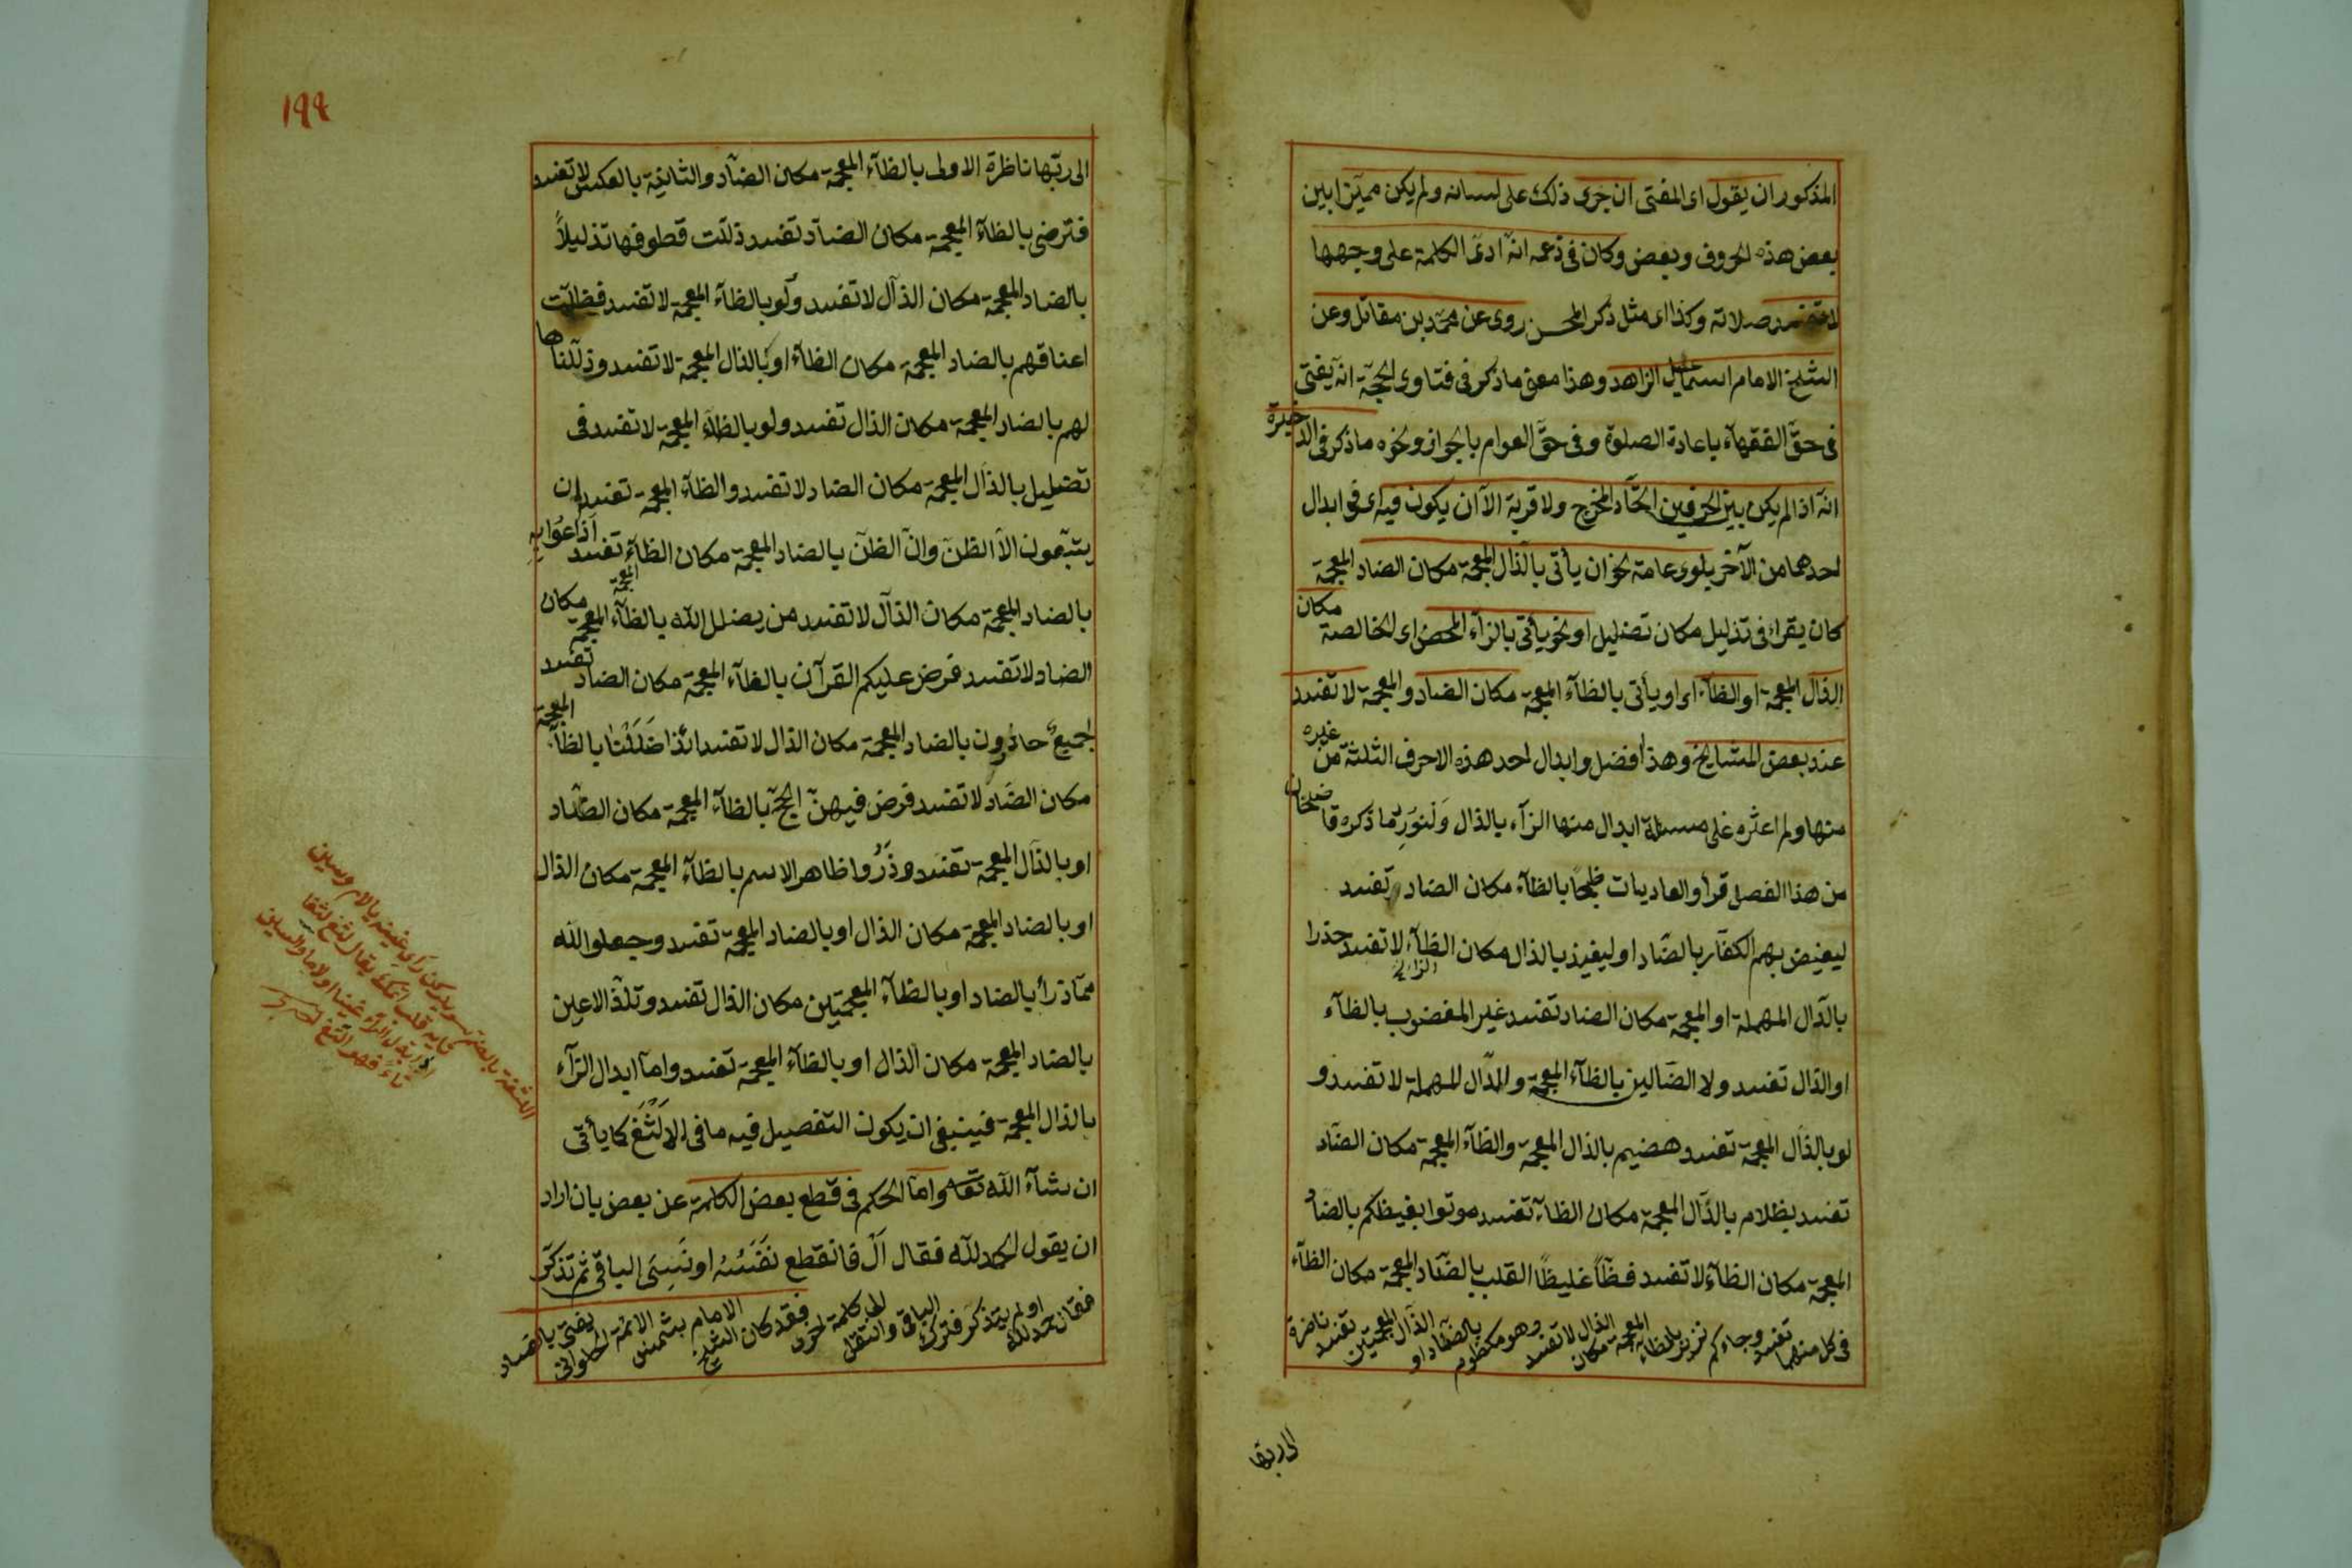 المذكور ان يقول اى المفتى ان جرى ذلك على لسانه ولم يكن مميّزا بين
بعض هذه الحروف وبعض وكان فى زعمه انّه ادّى الكلمة على وجهها
لا تفسد صلاته وكذا اى مثل ذكر المحسن روى عن محمّد بن مقاتل وعن
الشيخ الامام اسماعيل الزاهد وهذا معنى ما ذكر فى فتاوى الحجّة انّه يفتى
فى حقّ الفقهآء باعادة الصلوة وفى حقّ العوام بالجواز ونحوه ما ذكر فى الذخيرة
انّه اذا لم يكن بين الحرفين اتّحاد المخرج ولا قربة الّا ان يكون فيه اى فى ابدال
احدهما من الآخر بلوى عامة نحو ان يأتى بالذّال المعجمة مكان الضاد المعجمة
كان يقراء فى تذليل مكان تضليل او نحو يأتى بالزآء المحض اى الخالصة مكان
الذّال المعجمة او الظآء اى او يأتى بالظآء المعجمة مكان الضاد والمعجمة لا تفسد
عند بعض المشايخ وهذا افضل وابدال احد هذه الاحرف الثلثة من غيره
منها ولم اعثره على مسئلة ابدال منها الزآء بالذال ولنورد ما ذكره قاضيخان
من هذا الفصل قرأ والعاديات ظبحًا بالظآء مكان الضاد تفسد
ليغيض بهم الكفّار بالضّاد او ليغيذ بالذال مكان الظآء لا تفسد حذرا
بالدّال المهملة او المعجمة مكان الضاد تفسد غير المغضوب بالظآء
او الذال تفسد ولا الضّالين بالظآء المعجمة والدّال المهملة لا تفسد و
لو بالذّال المعجمة تفسد هضيم بالذال المعجمة والظآء المعجمة مكان الضّاد
تفسد بظلام بالذّال المعجمة مكان الظآء تفسد موتوا بغيظكم بالضاد
المعجمة مكان الظآء لا تفسد فظّاً غليظًا القلب بالضّاد المعجمة مكان الظآء
فى كل منهما تفسد وجاءكم نذير بالظاء المعجمة مكان الذال لا تفسد وهو مكظوم بالضّاد او الذّال المعجمتين تفسد ناضرة
الى ربها
١٩٩
الى ربّها ناظرة الاولى بالظآء المعجمة مكان الضآد والثانية بالعكس لا تفسد
فترضى بالظآء المعجمة مكان الضآد تفسد ذلّلت قطوفها تذليلاً
بالضاد المعجمة مكان الذآل لا تفسد ولو بالظآء المعجمة لا تفسد فظلّت
اعناقهم بالضاد المعجمة مكان الظآء او بالذال المعجمة لا تفسد وذلّلناها
لهم بالضاد المعجمة مكان الذال تفسد ولو بالظآء المعجمة لا تفسد فى
تضليل بالذآل المعجمة مكان الضاد لا تفسد والظآء المعجمة تفسد ان
يتبّعون الّا الظنّ وانّ الظنّ بالضاد المعجمة مكان الظآء تفسد اذاعوا به
بالضاد المعجمة مكان الذآل لا تفسد من يضلل الله بالظآء المعجمة مكان
الضاد لا تفسد فرض عليكم القرآن بالظآء المعجمة مكان الضاد تفسد
لجميعٌ حاذرون بالضاد المعجمة مكان الذال لا تفسد ائذا ضَلَلْنا بالظآء المعجمة
مكان الضّاد لا تفسد فرض فيهنّ الحجّ بالظآء المعجمة مكان الضّاد
او بالذآل المعجمة تفسد وذَرُوا ظاهر الاسم بالظآء المعجمة مكان الذال
او بالضاد المعجمة مكان الذال او بالضاد المعجمة تفسد وجعلوا لله
ممّا ذرأ بالضاد او بالظآء المعجمتين مكان الذال تفسد وتلذّ الاعين
بالضاد المعجمة مكان الذال او بالظآء المعجمة تفسد وامّا ابدال الزآء
بالذال المعجمة فينبغى ان يكون التفصيل فيه ما فى الالثغ كما يأتى
ان شآء الله تعا وامّا الحكم فى قطع بعض الكلمة عن بعض بان اراد
ان يقول الحمد لله فقال اَلْ فانقطع نَفَسُه او نَسِىَ الباقى ثم تذكّر
فقال حمد لله او لم يتذكر فترك الباقى وانتقل الى كلمة اخرى فقد كان الشيخ الامام شمس الائمّة الحلوانى يفتى بالفساد